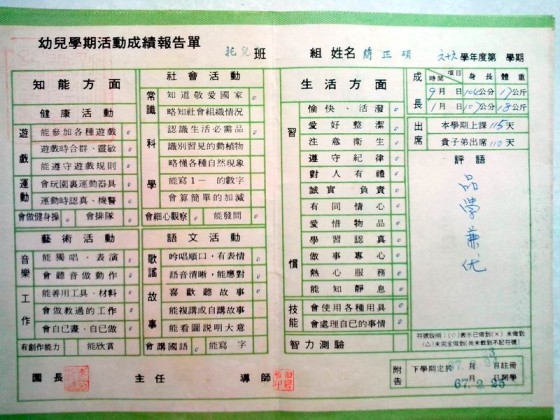 幼兒學期活動成績報告單
托兒 班 組 姓名 學年度第 學期
知能方面
健康活動
遊戲
能參加各種遊戲
遊戲時合群、靈敏
能遵守遊戲規則
運動
會玩園裏運動器具
運動時認真、機警
會做健身操 會排隊
藝術活動
音樂
能獨唱、表演
會聽音做動作
工作
能善用工具、材料
會做教過的工作
會自己畫、自己做
有創作能力 能欣賞
社會活動
常識
知道敬愛國家
略知社會組織情況
認識生活必需品
科學
識別習見的動植物
略懂各種自然現象
能寫1—的數字
會算簡單的加減
會細心觀察 能發問
語文活動
歌謠
吟唱順口,有表情
語音清晰,能應對
故事
喜歡聽故事
能複講或自講故事
能看圖說明大意
會講國語 能寫字
生活方面
習慣
愉快、活潑
愛好整潔
注意衛生
遵守紀律
對人有禮
誠實負責
有同情心
愛惜物品
學習認真
做事專心
熱心服務
能知靜息
技能
會使用各種用具
會處理自己的事情
智力測驗
成長
時間 項目 身長 體重
9月 公分 17公斤
1月 公分 18公斤
出席
本學期上課115天
貴子弟出席110天
評語
品學兼优
符號說明:(○)表示已做到(×)未做到
(△)未完全做到(尚未教到不記符號)
附告
下學期定於 月 日註冊
月 日開學
67. 2. 25
園長 主任 導師